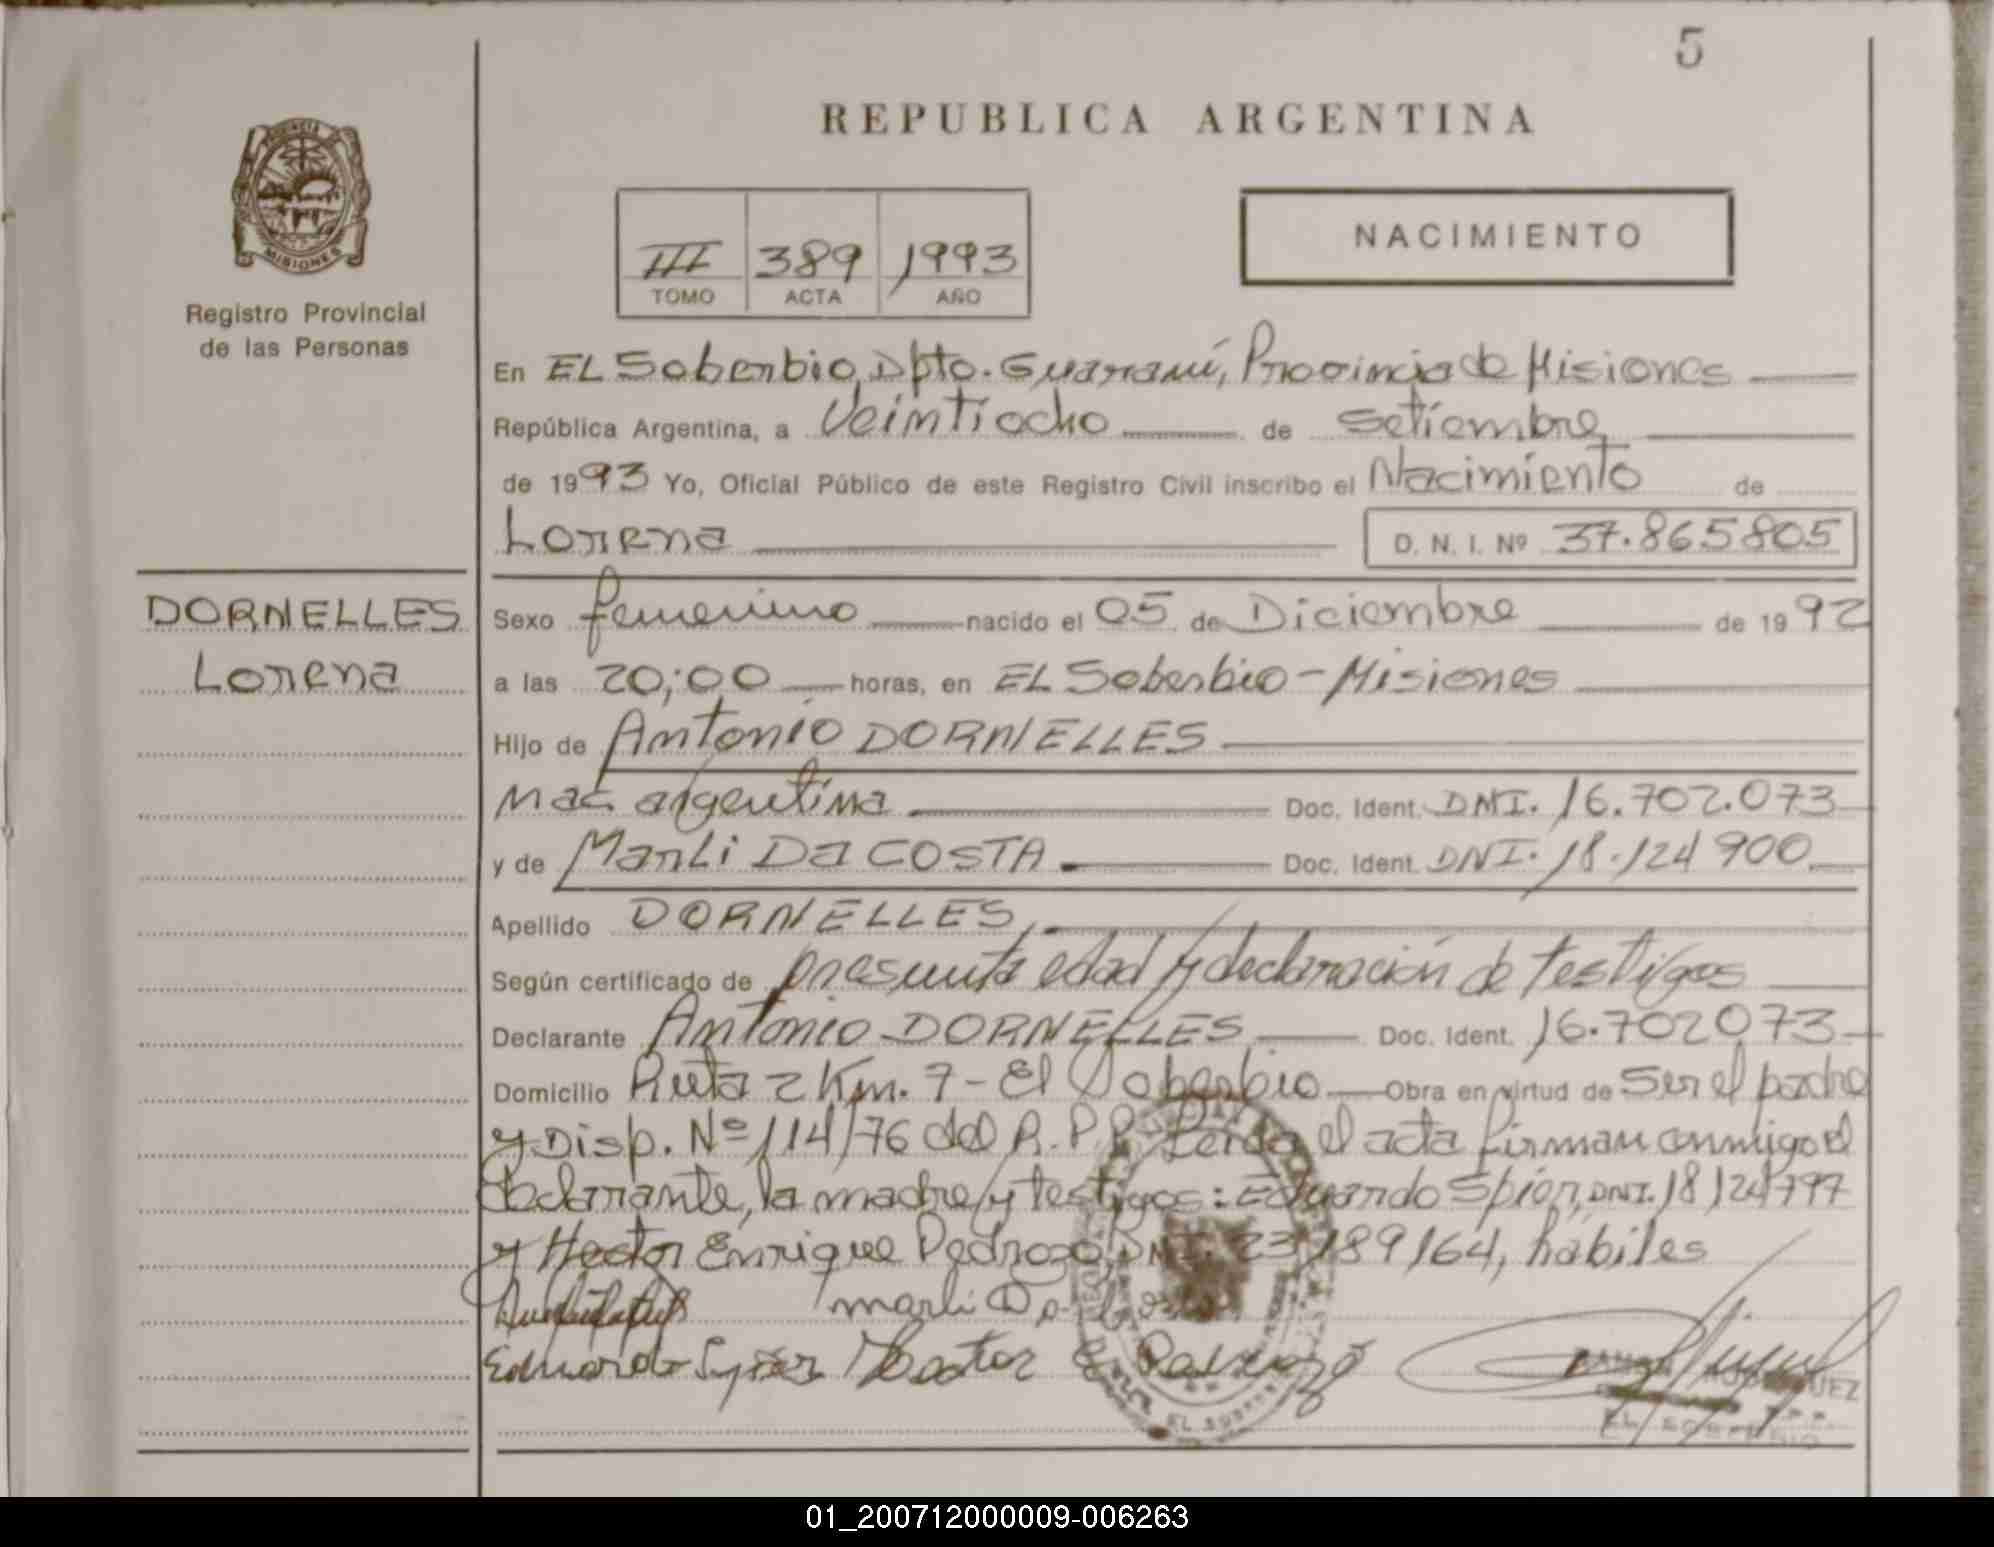 5
REPUBLICA ARGENTINA
PROVINCIA
MISIONES
Registro Provincial
de las Personas
III 389 1993
TOMO ACTA AÑO
NACIMIENTO
En EL Soberbio, Dpto. Guaraní, Provincia de Misiones
República Argentina, a Veintiocho de Setiembre
de 1993 Yo, Oficial Público de este Registro Civil inscribo el Nacimiento de
Lorena D. N. I. Nº 37.865805
DORNELLES
Lorena
Sexo femenino nacido el 05 de Diciembre de 1992
a las 20;00 horas, en EL Soberbio - Misiones
Hijo de Antonio DORNELLES
Nac argentina Doc. Ident. DNI. 16.702.073
y de Marli Da COSTA Doc. Ident. DNI. 18.124 900
Apellido DORNELLES,
Según certificado de presunta edad y declaración de testigos
Declarante Antonio DORNELLES Doc. Ident. 16.702073
Domicilio Ruta 2 Km. 7 - El Soberbio Obra en virtud de Ser el padre
y Disp. Nº 114/76 del R.P.P. Leida el acta firman conmigo el
declarante, la madre y testigos: Eduardo Spier, DNI. 18124797
y Hector Enrique Pedrozo, DNI. 23189164, hábiles
marli Da
Eduardo Spier Hector E Pedrozo
EL SOBERBIO
01_200712000009-006263